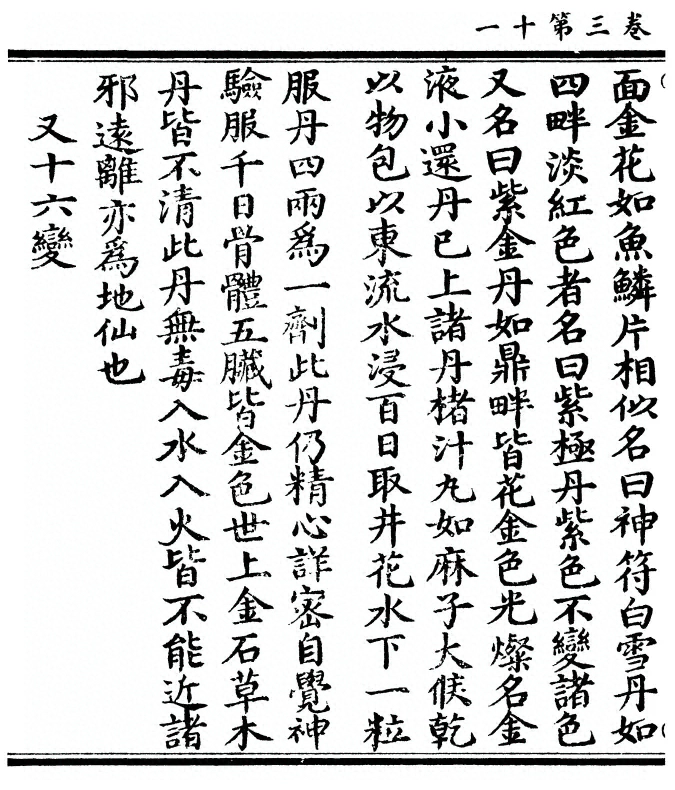 卷三第十一
面金花如魚鱗片相似名曰神符白雪丹如
四畔淡紅色者名曰紫極丹紫色不變諸色
又名曰紫金丹如鼎畔皆花金色光燦名金
液小還丹已上諸丹楮汁丸如麻子大候乾
以物包以東流水浸百日取井花水下一粒
服丹四兩爲一劑此丹仍精心詳密自覺神
驗服千日骨體五臟皆金色世上金石草木
丹皆不清此丹無毒入水入火皆不能近諸
邪遠離亦爲地仙也
又十六變